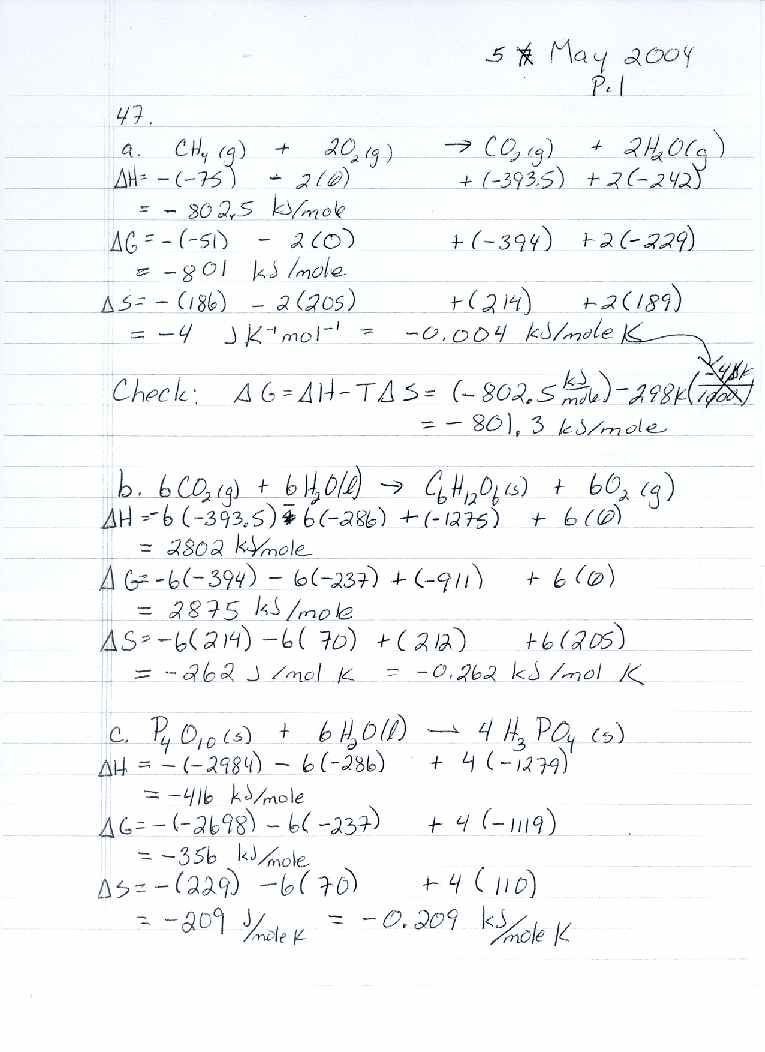 5 May 2004
P.1
47.
a. CH₄(g) + 2O₂(g) → CO₂(g) + 2H₂O(g)
ΔH = -(-75) - 2(0) + (-393.5) + 2(-242)
= -802.5 kJ/mole
ΔG = -(-51) - 2(0) + (-394) + 2(-229)
= -801 kJ/mole
ΔS = -(186) - 2(205) + (214) + 2(189)
= -4 J K⁻¹ mol⁻¹ = -0.004 kJ/mole K
Check: ΔG = ΔH - TΔS = (-802.5 kJ/mole) - 298K(
= -801.3 kJ/mole
b. 6CO₂(g) + 6H₂O(l) → C₆H₁₂O₆(s) + 6O₂(g)
ΔH = -6(-393.5) - 6(-286) + (-1275) + 6(0)
= 2802 kJ/mole
ΔG = -6(-394) - 6(-237) + (-911) + 6(0)
= 2875 kJ/mole
ΔS = -6(214) - 6(70) + (212) + 6(205)
= -262 J/mol K = -0.262 kJ/mol K
c. P₄O₁₀(s) + 6H₂O(l) → 4H₃PO₄(s)
ΔH = -(-2984) - 6(-286) + 4(-1279)
= -416 kJ/mole
ΔG = -(-2698) - 6(-237) + 4(-1119)
= -356 kJ/mole
ΔS = -(229) - 6(70) + 4(110)
= -209 J/mole K = -0.209 kJ/mole K